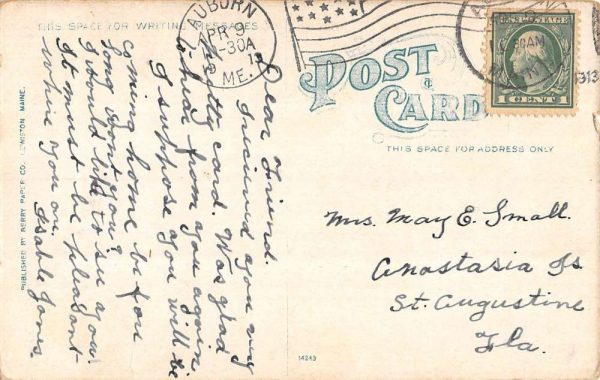 THIS SPACE FOR WRITING MESSAGES
AUBURN
APR 9
-30A
ME.
POST
CARD
U.S. POSTAGE
1 CENT 1
1913
THIS SPACE FOR ADDRESS ONLY
Dear Friend.
I recieved your very
pretty card. Was glad
to hear from you again.
I suppose you will be
coming home be for
long don't you?
I would like to see you.
It must be pleasant
where you are.
Isabel Jones.
Mrs. May E. Small.
Anastasia Is
St. Augustine
Fla.
PUBLISHED BY BERRY PAPER CO., LEWISTON, MAINE.
14243